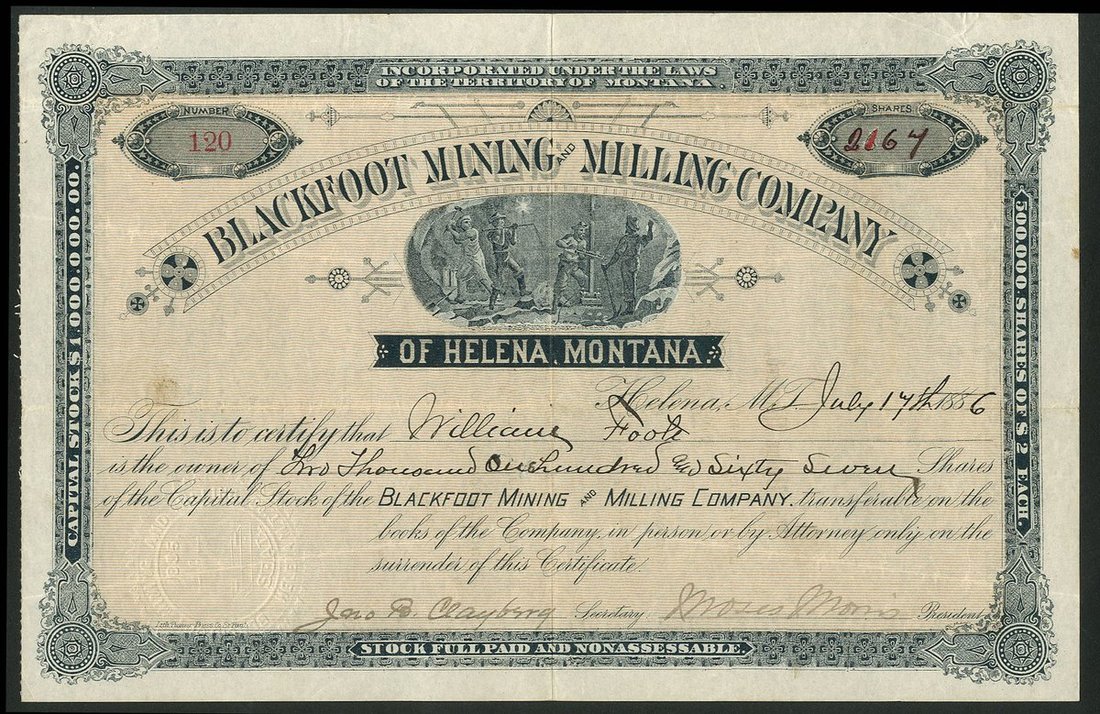 INCORPORATED UNDER THE LAWS
OF THE TERRITORY OF MONTANA.
NUMBER
120
SHARES
2167
BLACKFOOT MINING AND MILLING COMPANY
OF HELENA, MONTANA.
CAPITAL STOCK $1,000,000.00.
500,000 SHARES OF $2 EACH.
Helena, M.T. July 17th 1886
This is to certify that William Foote
is the owner of Two Thousand One hundred and Sixty Seven Shares
of the Capital Stock of the BLACKFOOT MINING AND MILLING COMPANY. transferable on the
books of the Company, in person or by Attorney only on the
surrender of this Certificate.
Jno B. Clayberg Secretary. Moses Morris President.
STOCK FULL PAID AND NONASSESSABLE.